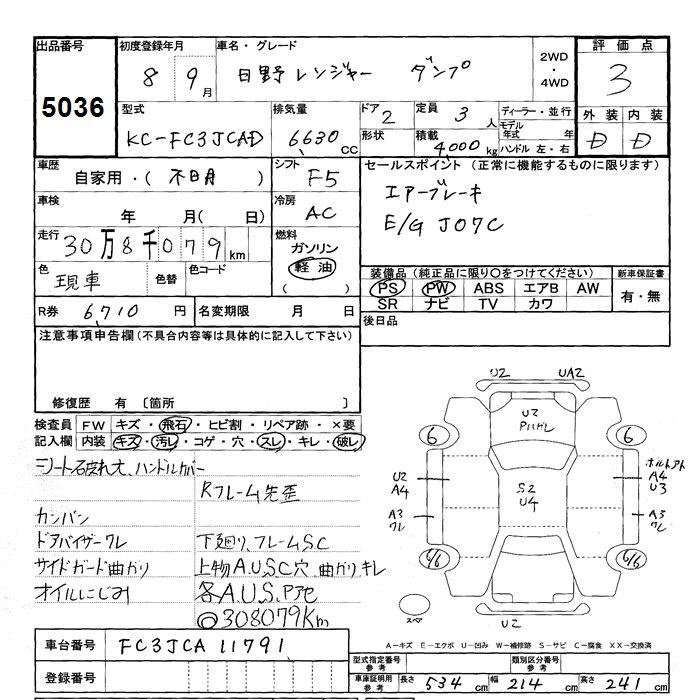 出品番号 初度登録年月 車名・グレード 2WD・4WD 評価点
5036 8 9月 日野レンジャー ダンプ 3
型式 排気量 ドア 2 定員 3人 ディーラー・並行 外装 内装
KC-FC3JCAD 6630cc 形状 積載 4,000kg モデル年式 年 D D
ハンドル 左・右
車歴 シフト セールスポイント (正常に機能するものに限ります)
自家用・( 不明 ) F5 エアーブレーキ
車検 冷房 E/G J07C
年 月( 日) AC
走行 30万8千079km 燃料
ガソリン
軽油
( )
色 現車 色替 色コード
装備品 (純正品に限り○をつけてください) 新車保証書
PS PW ABS エアB AW 有・無
SR ナビ TV カワ
R券 6,710円 名変期限 月 日 後日品
注意事項申告欄(不具合内容等は具体的に記入して下さい)
修復歴 有 〔箇所 〕
検査員 FW キズ・飛石・ヒビ割・リペア跡・×要
記入欄 内装 キズ・汚レ・コゲ・穴・スレ・キレ・破レ
シート破れ大、ハンドルカバー
Rフレーム先歪
カンバン
ドアバイザーワレ 下廻り、フレームS.C
サイドガード曲がり 上物A.U.S.C穴、曲がり、キレ
オイルにじみ 各A.U.S.Pアセ
◎308079Km
U2 UA2
U2
Pハガレ
6 6
ボルトアト
U2 A4
A4 U3
S2
U4
A3 A3
ワレ ワレ
6/6 6/6
スペア
U2
A−キズ E−エクボ U−凹み W−補修跡 S−サビ C−腐食 XX−交換済
車台番号 FC3JCA 11791
登録番号
型式指定番号 参考 類別区分番号 参考
車庫証明用 参考 長さ 534cm 幅 214cm 高さ 241cm